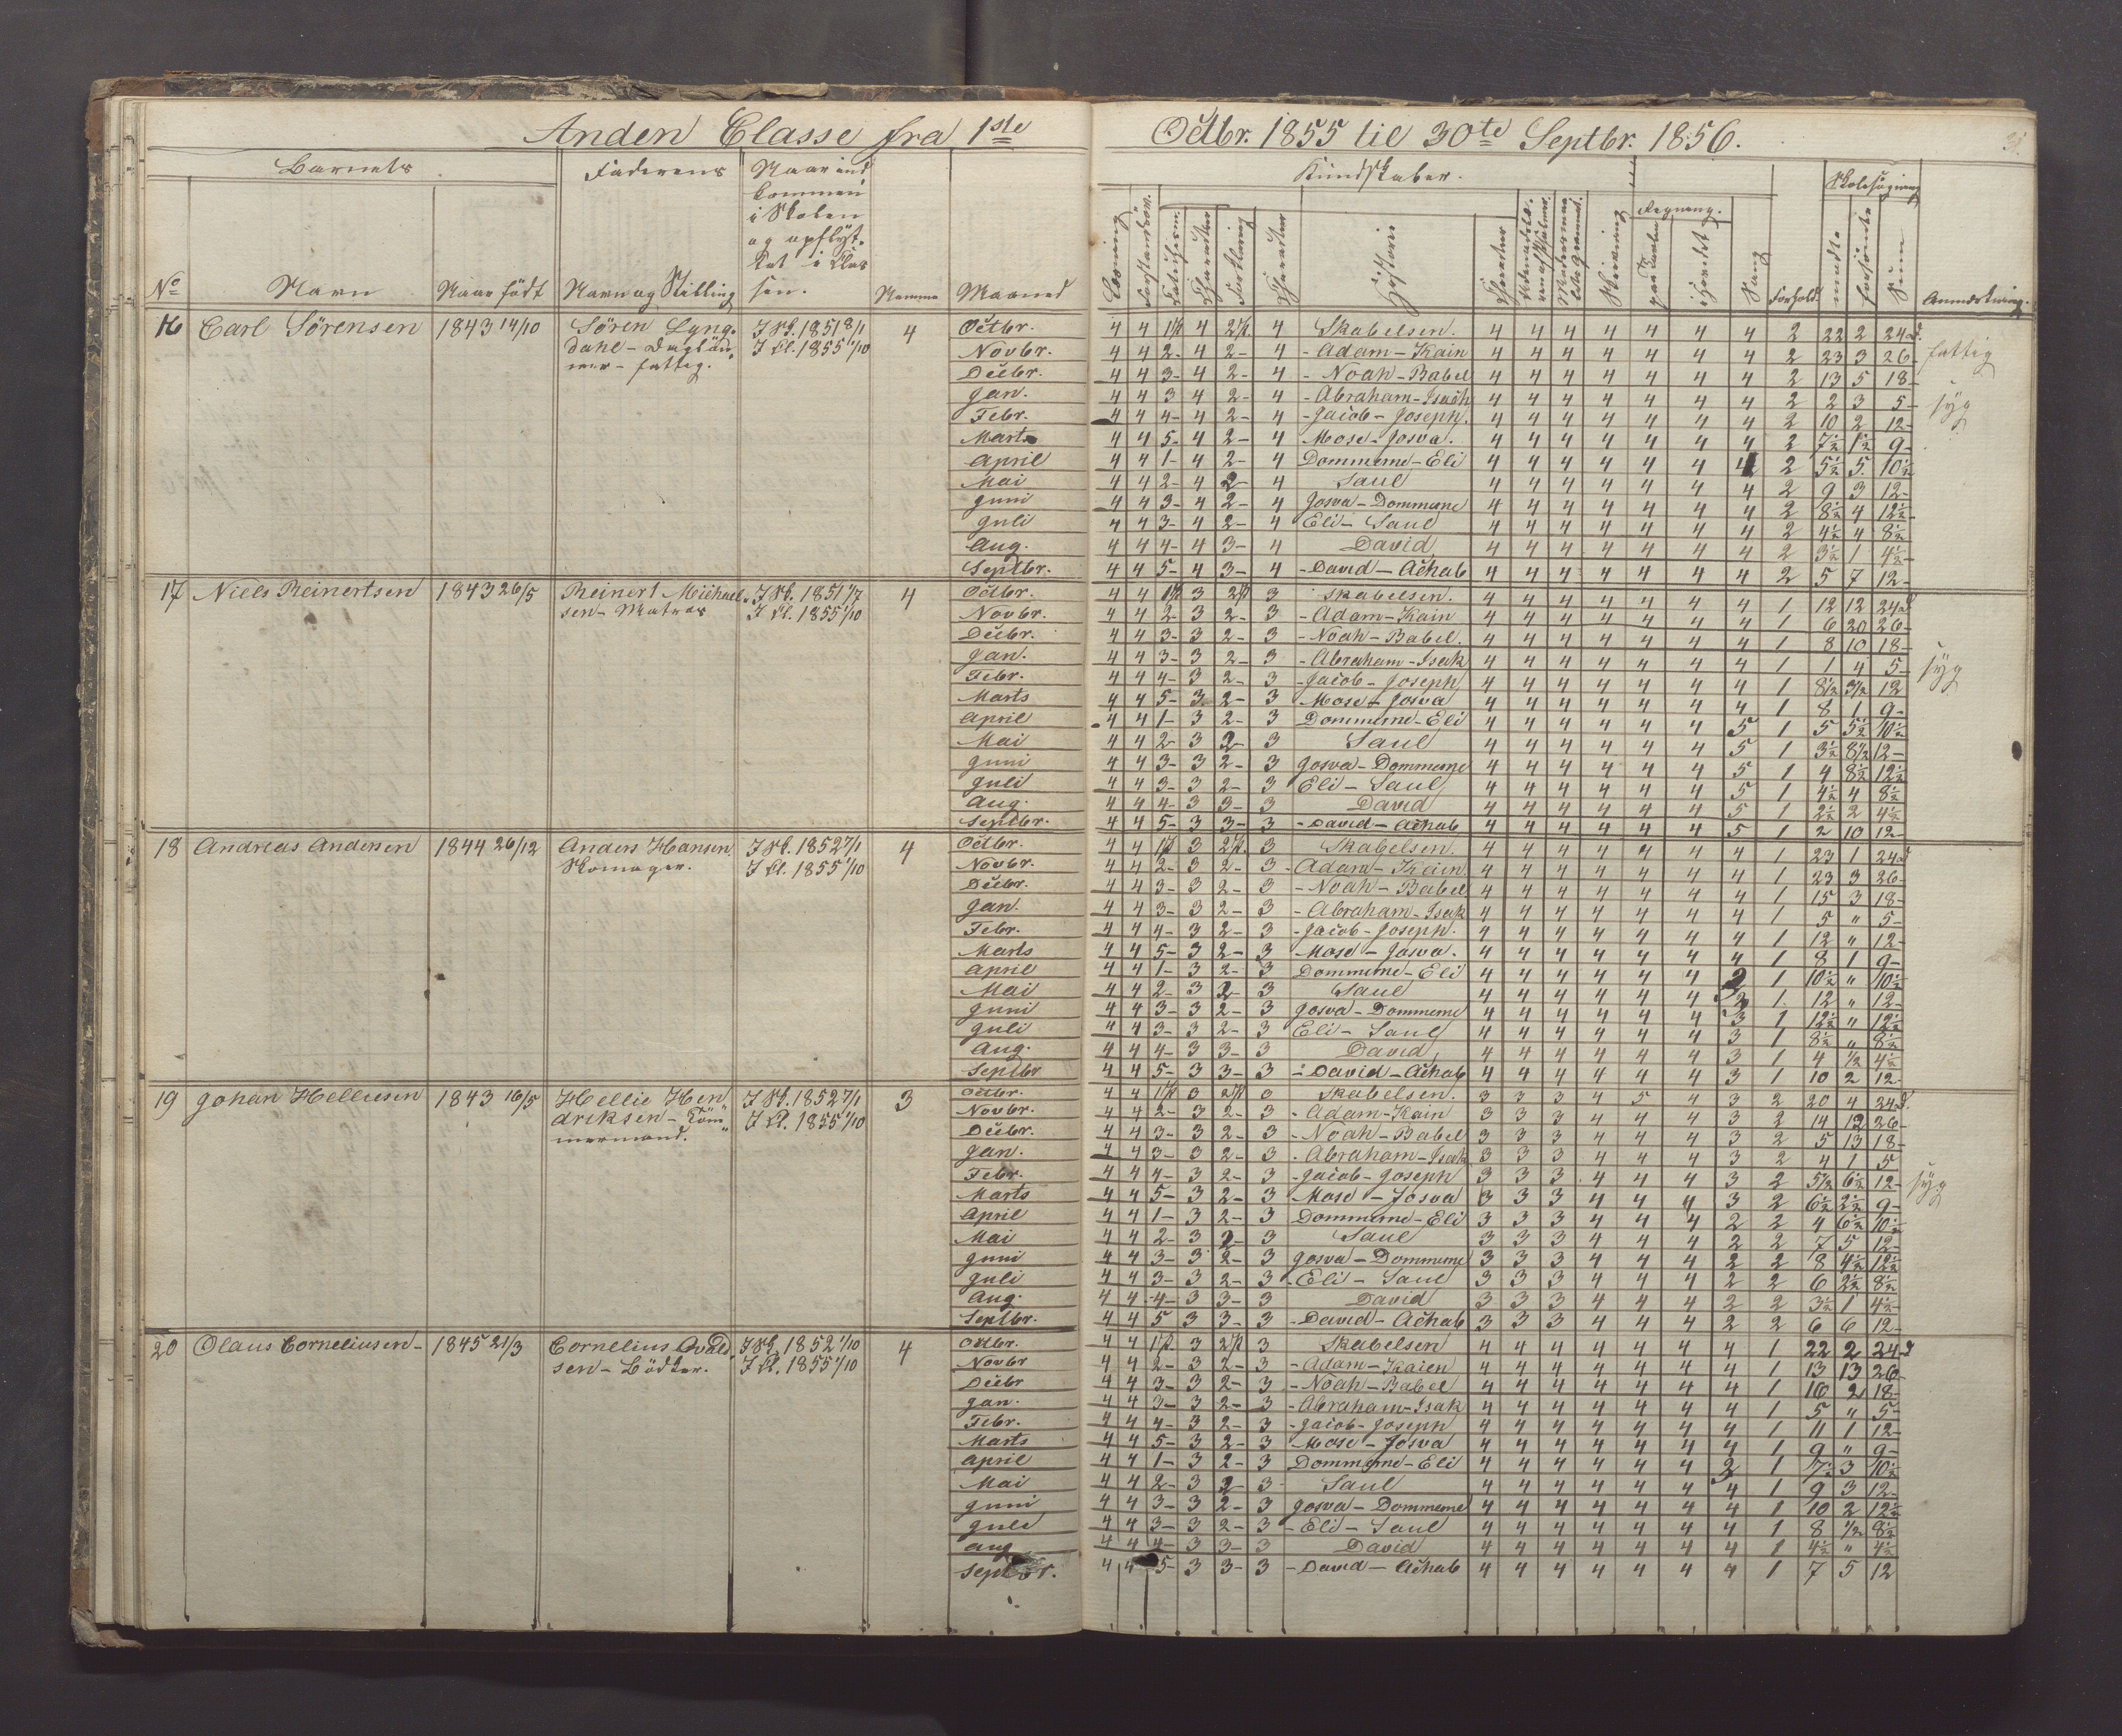 Anden Classe fra 1ste Octbr. 1855 til 30te Septbr. 1856.
Barnets
Faderens
Naar ind
kommen
i Skolen
og opflyt-
tet i Clas
sen.
No
Navn
Naar født
Navn og Stilling
Maaned
Kundskaber.
Regning.
Historie
Skrivning
Sang
Forhold
Skolesøgning
mødte
forsømte
Sum
Anmærkning.
16 Carl Sörensen 1843 14/10 Sören Lyng-
dahl - Daglön
ner - fattig.
I Sk. 1851 8/1
I Cl. 1855 1/10
4
Octbr. 4 4 1ste P. 4 2 P. 4 Skabelsen. 4 4 4 4 4 4 4 2 22 2 24 d.
Novbr. 4 4 2- 4 2- 4 - Adam - Kain 4 4 4 4 4 4 4 2 23 3 26- fattig
Decbr. 4 4 3- 4 2- 4 - Noah - Babel 4 4 4 4 4 4 4 2 13 5 18-
Jan. 4 4 3 4 2- 4 - Abraham - Isach 4 4 4 4 4 4 4 2 2 3 5- syg
Febr. 4 4 4- 4 2- 4 - Jacob - Joseph. 4 4 4 4 4 4 4 2 10 2 12-
Marts 4 4 5- 4 2- 4 Mose - Josva. 4 4 4 4 4 4 4 2 7½ 1½ 9-
April 4 4 1- 4 2- 4 Dommerne - Eli 4 4 4 4 4 4 4 2 5½ 5 10½
Mai 4 4 2- 4 2- 4 Saul 4 4 4 4 4 4 4 2 9 3 12-
Juni 4 4 3- 4 2- 4 Josva - Dommerne 4 4 4 4 4 4 4 2 8½ 4 12½
Juli 4 4 3- 4 2- 4 Eli - Saul 4 4 4 4 4 4 4 2 4½ 4 8½
Aug. 4 4 4- 4 3- 4 David 4 4 4 4 4 4 4 2 3½ 1 4½-
Septbr. 4 4 5- 4 3- 4 - David - Achab 4 4 4 4 4 4 4 2 5 7 12-
17 Niels Reinertsen 1843 26/5 Reinert Michael-
sen - Matros
I Sk. 1851 1/7
I Cl. 1855 1/10
4
Octbr. 4 4 1 P 3 2 P 3 Skabelsen. 4 4 4 4 4 4 4 1 12 12 24 d
Novbr. 4 4 2- 3 2- 3 - Adam - Kain 4 4 4 4 4 4 4 1 6 20 26-
Decbr. 4 4 3- 3 2- 3 - Noah - Babel. 4 4 4 4 4 4 4 1 8 10 18-
Jan. 4 4 3- 3 2- 3 - Abraham - Isak 4 4 4 4 4 4 4 1 1 4 5- syg
Febr. 4 4 4- 3 2- 3 - Jacob - Joseph 4 4 4 4 4 4 4 1 8½ 3½ 12
Marts 4 4 5- 3 2- 3 Mose - Josva 4 4 4 4 4 4 4 1 8 1 9-
April 4 4 1- 3 2- 3 Dommerne - Eli 4 4 4 4 4 4 5 1 5 5½ 10½
Mai 4 4 2- 3 2- 3 Saul 4 4 4 4 4 4 5 1 3½ 8½ 12-
Juni 4 4 3- 3 2- 3 Josva - Dommerne 4 4 4 4 4 4 5 1 4 8½ 12½
Juli 4 4 3- 3 2- 3 Eli - Saul 4 4 4 4 4 4 5 1 4½ 4 8½
Aug. 4 4 4- 3 3- 3 David 4 4 4 4 4 4 5 1 2½ 2 4½
Septbr. 4 4 5- 3 3- 3 - David - Achab 4 4 4 4 4 4 5 1 2 10 12-
18 Andreas Andersen 1844 26/12 Anders Hansen
Skomager.
I Sk. 1852 7/1
I Cl. 1855 1/10
4
Octbr. 4 4 1 P 3 2 P. 3 Skabelsen. 4 4 4 4 4 4 4 1 23 1 24 d
Novbr. 4 4 2- 3 2- 3 - Adam - Kain 4 4 4 4 4 4 4 1 23 3 26-
Decbr. 4 4 3- 3 2- 3 - Noah - Babel 4 4 4 4 4 4 4 1 15 3 18-
Jan. 4 4 3- 3 2- 3 - Abraham - Isak 4 4 4 4 4 4 4 1 5 " 5-
Febr. 4 4 4- 3 2- 3 - Jacob - Joseph. 4 4 4 4 4 4 4 1 12 " 12-
Marts 4 4 5- 3 2- 3 Mose - Josva. 4 4 4 4 4 4 4 1 8 1 9-
April 4 4 1- 3 2- 3 Dommerne - Eli 4 4 4 4 4 4 3 1 10½ " 10½
Mai 4 4 2- 3 2- 3 Saul 4 4 4 4 4 4 3 1. 12 " 12-
Juni 4 4 3- 3 2- 3 Josva - Dommerne 4 4 4 4 4 4 3 1 12½ " 12½
Juli 4 4 3- 3 2- 3 Eli - Saul 4 4 4 4 4 4 3 1 8½ " 8½
Aug. 4 4 4- 3 3- 3 David 4 4 4 4 4 4 3 1 4 ½ 4½
Septbr 4 4 5- 3 3- 3 - David - Achab 4 4 4 4 4 4 3 1 10 2 12
19 Johan Helliesen 1843 16/5 Hellie Hen
driksen - Töm
mermand.
I Sk. 1852 7/1
I Cl. 1855 1/10
3
Octbr. 4 4 1 P 3 2 P 3 Skabelsen. 3 3 3 4 5 4 3 2 20 4 24 d.
Novbr. 4 4 2- 3 2- 3 - Adam - Kain 3 3 3 4 4 4 3 2 14 12 26-
Decbr. 4 4 3- 3 2- 3 - Noah - Babel 3 3 3 4 4 4 3 2 5 13 18-
Jan. 4 4 3- 3 2- 3 - Abraham - Isak 3 3 3 4 4 4 3 2 4 1 5
Febr. 4 4 4- 3 2- 3 - Jacob - Joseph 3 3 3 4 4 4 3 2 5½ 6½ 12- syg
Marts 4 4 5- 3 2- 3 Mose - Josva 3 3 3 4 4 4 3 2 6½ 2½ 9-
April 4 4 1- 3 2- 3 Dommerne - Eli 3 3 3 4 4 4 2 2 4 6½ 10½
Mai 4 4 2- 3 2- 3 Saul 3 3 3 4 4 4 2 2 7 5 12-
Juni 4 4 3- 3 2- 3 Josva - Dommerne 3 3 3 4 4 4 2 2 8 4½ 12½
Juli 4 4 3- 3 2- 3 - Eli - Saul 3 3 3 4 4 4 2 2 6 2½ 8½
Aug. 4 4 4- 3 3- 3 David 3 3 3 4 4 4 2 2 3½ 1 4½-
Septbr. 4 4 5 3 3- 3 - David - Achab 3 3 3 4 4 4 2 2 6 6 12-
20 Olaus Corneliusen - 1845 21/3 Cornelius Avald
sen - Bödker.
I Sk. 1852 1/10
I Cl. 1855 1/10
4
Octbr. 4 4 1 P. 3 2 P 3 Skabelsen 4 4 4 4 4 4 4 1 22 2 24 d
Novbr 4 4 2- 3 2- 3 - Adam - Kaien 4 4 4 4 4 4 4 1 13 13 26-
Decbr 4 4 3- 3 2- 3 - Noah - Babel 4 4 4 4 4 4 4 1 16 2 18-
Jan. 4 4 3- 3 2- 3 - Abraham - Isak 4 4 4 4 4 4 4 1 5 " 5-
Febr. 4 4 4- 3 2- 3 - Jacob - Joseph 4 4 4 4 4 4 4 1 11 1 12-
Marts 4 4 5- 3 2- 3 - Mose - Josva 4 4 4 4 4 4 4 1 9 " 9-
April 4 4 1- 3 2- 3 Dommerne - Eli 4 4 4 4 4 4 3 1 7½ 3 10½
Mai 4 4 2- 3 2- 3 Saul 4 4 4 4 4 4 4 1 9 3 12-
Juni 4 4 3- 3 2- 3 Josva - Dommerne 4 4 4 4 4 4 4 1 10 2 12½
Juli 4 4 3- 3 2- 3 - Eli - Saul 4 4 4 4 4 4 4 1 8 ½ 8½
Aug 4 4 4- 3 3- 3 David 4 4 4 4 4 4 4 1 4½ " 4½
Septbr. 4 4 5- 3 3- 3 - David - Achab 4 4 4 4 4 4 4 1 7 5 12